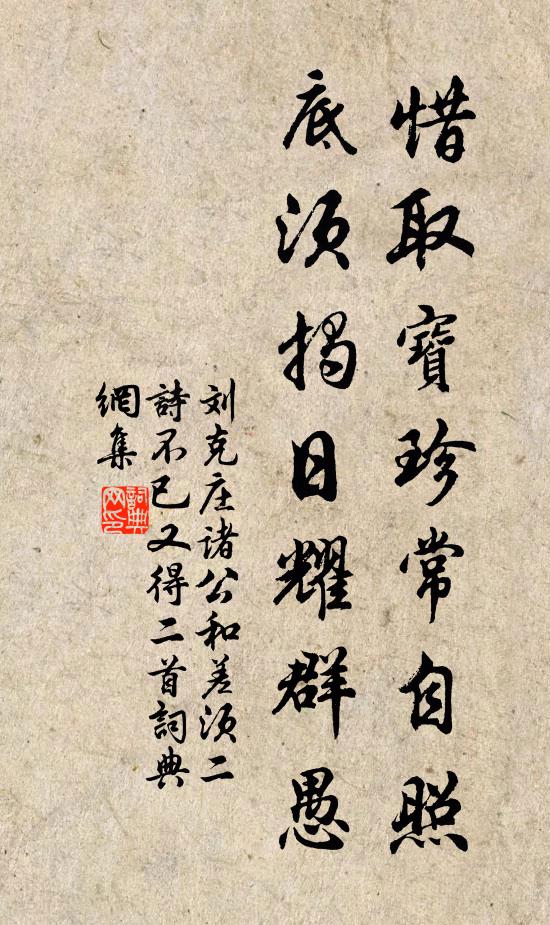 惜取寶珍常自照
底須揭日耀群愚
刘克庄諸公和差須二
詩不已又得二首詞典
網集
詞典
网印